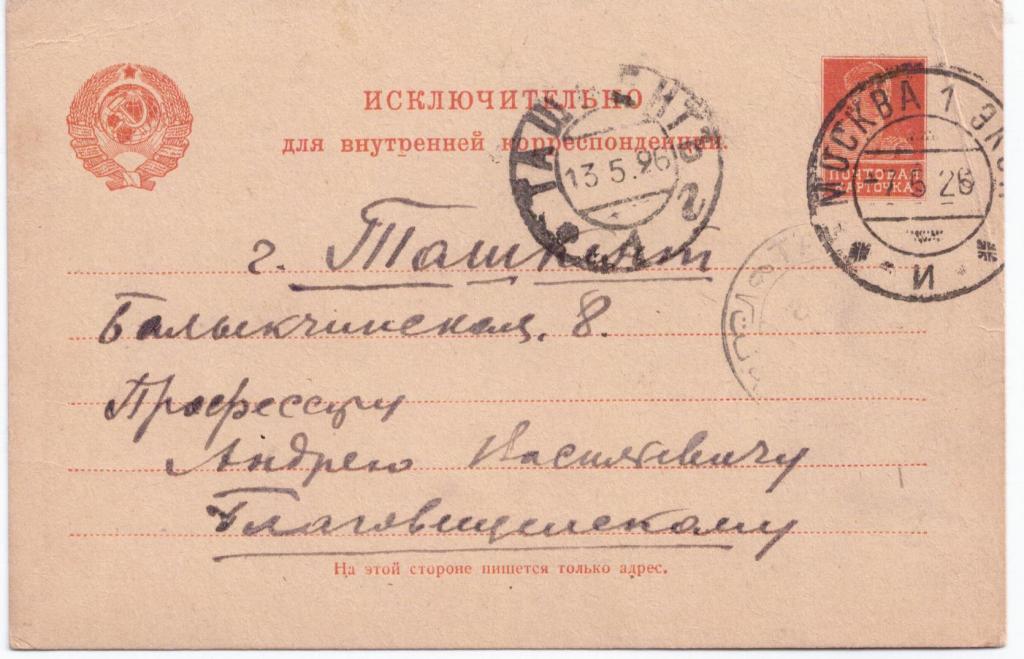 ИСКЛЮЧИТЕЛЬНО
для внутренней корреспонденции.
ПОЧТОВАЯ
КАРТОЧКА
МОСКВА 1 ЭКСП
-7.5 26
И
ТАШКЕНТ
13.5.26
г. Ташкент
Балыкчинская, 8.
Профессору
Андрею Васильевичу
Благовещенскому
На этой стороне пишется только адрес.